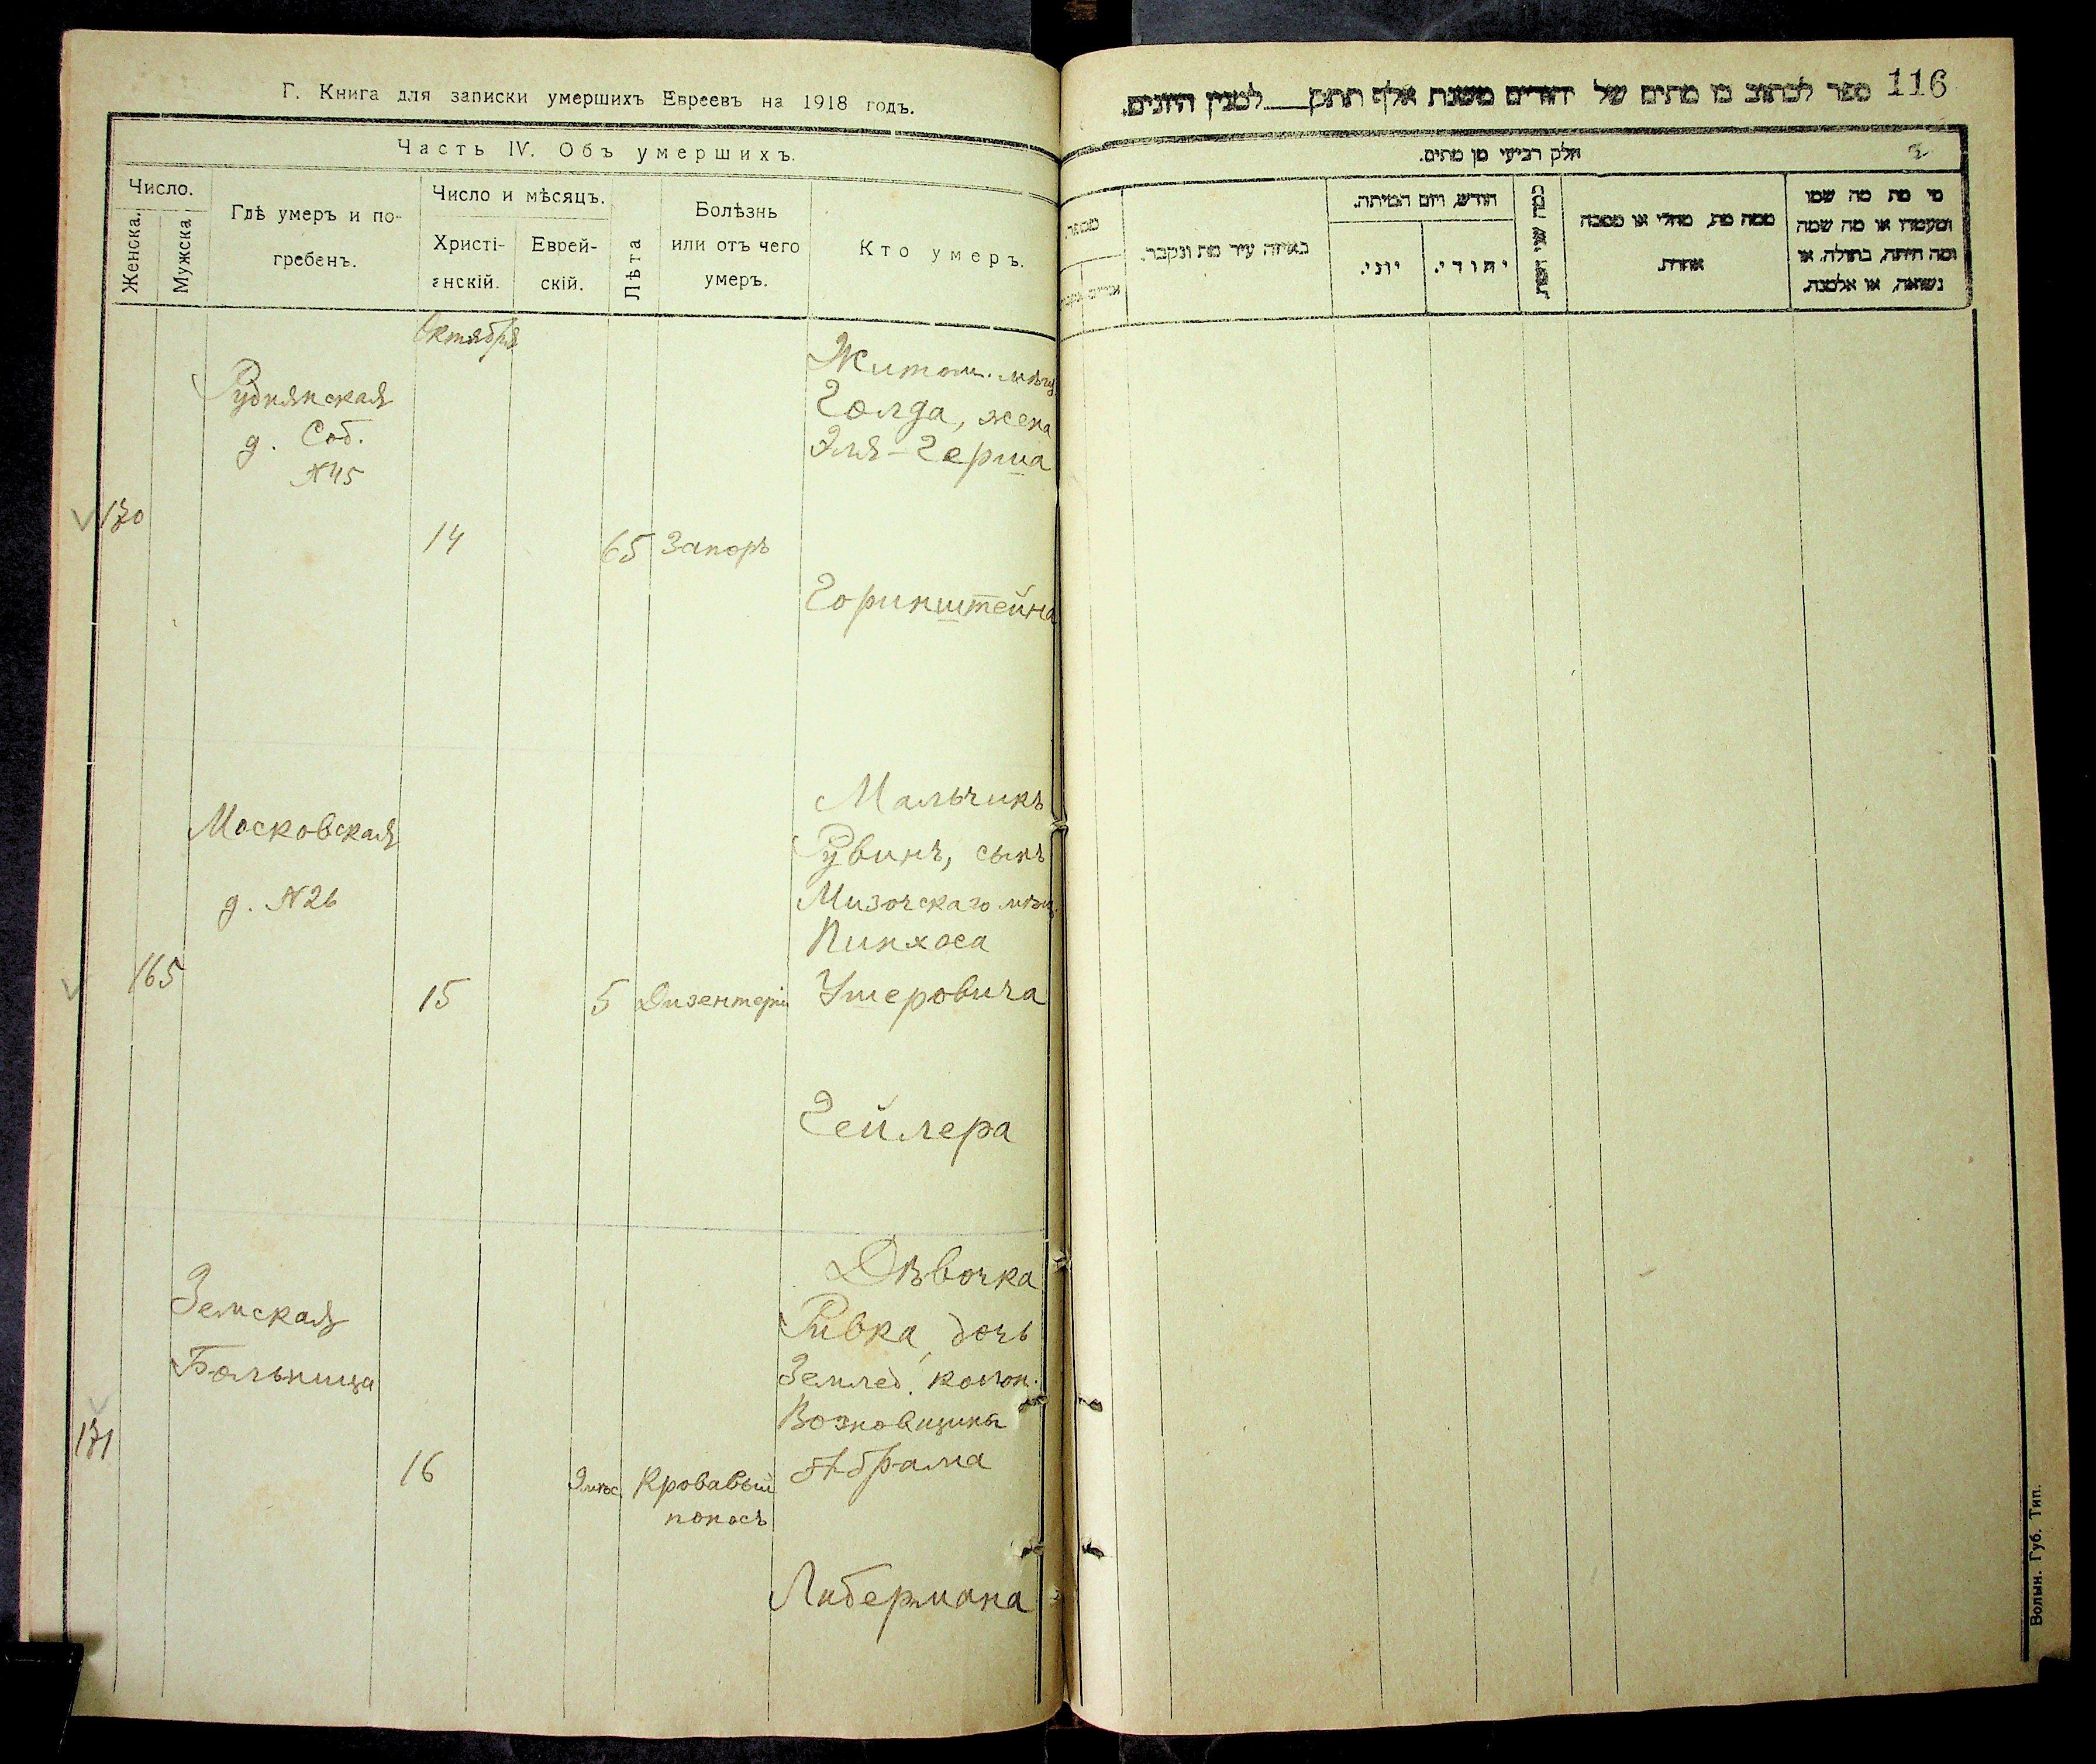 Г. Книга для записки умершихъ Евреевъ на 1918 годъ.
Часть IV. Объ умершихъ.
Число.
Женска.
Мужска
Гдѣ умеръ и по-
гребенъ.
Число и мѣсяцъ.
Христі-
анскій.
Еврей-
скій.
Лѣта
Болѣзнь
или отъ чего
умеръ.
Кто умеръ.
Октября
130
Руднянская
д. Соб.
№45
14
65
Запоръ
Житом. мѣщ.
Голда, жена
Эля-Герша
Горинштейна
165
Московская
д. №26
15
5
Дизентерія
Мальчикъ
Рувинъ, сынъ
Мизочскаго мѣщ.
Пинхоса
Ушеровича
Гейлера
131
Земская
Больница
16
Кровавый
поносъ
Дѣвочка
Ривка, дочь
Землед. колон.
Абрама
Либермана
116
ספר לכתוב בו מתים של יהודים משנת אלף תתק למנין היונים.
חלק רביעי מן מתים.
מספר
באיזה עיר מת ונקבר.
חודש, ויום המיתה.
יוני.
יהודי.
ממה מת, מחלי או מסבה
אחרת.
מי מת מה שמו
ומעמדו או מה שמה
ומה היתה, בתולה, או
נשואה, או אלמנה.
Волын. Губ. Тип.